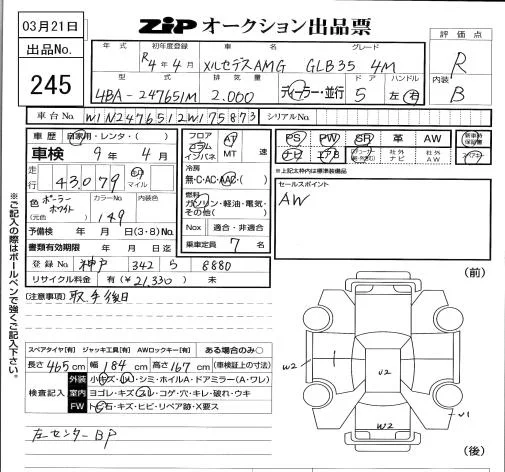 03月21日
出品No.
245
ZIP オークション出品票
評価点
R
内装
B
年式 初年度登録 車名 グレード
R4年4月 メルセデスAMG GLB35 4M
型式 排気量 ドア ハンドル
4BA-247651M 2.000 ディーラー・並行 5 左 右
車台No. W1N2476512W175873 シリアルNo.
車歴 自家用・レンタ・( )
車検 9年 4月
走行 43.079 km マイル
色 ポーラーホワイト (元色) カラーNo. 149 内装色
予備検 年 月 日(3・8)No.
書類有効期限 年 月 日迄
登録No 神戸 342 ら 8880
リサイクル料金 有(¥21,330) 未
フロア コラム インパネ AT MT 速
冷房 無・C・AC・AAC・( )
燃料 ガソリン・軽油・電気・その他( )
Nox 適合・非適合
乗車定員 7 名
PS PW SR 革 AW
社外ナビ 社外AW
新車時保証書
※上記太枠内は標準装備品
セールスポイント
AW
※ご記入の際はボールペンで強くご記入下さい。
(注意事項) 取手後日
スペアタイヤ[有] ジャッキ工具[有] AWロックキー[有] ある場合のみ○
長さ465cm 幅184cm 高さ167cm (車検証上の寸法)
検査記入
外装 小キズ・凹・シミ・ホイルA・ドアミラー(A・ワレ)
室内 ヨゴレ・キズ・スレ・コゲ・穴・キレ・破れ・ウキ
FW トビ石・キズ・ヒビ・リペア跡・X要ス
左センターBP
(前)
W2 1 U2 W2 W1
(後)